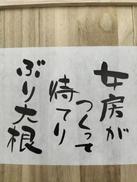 女房が
つくって
待てり
ぶり大根